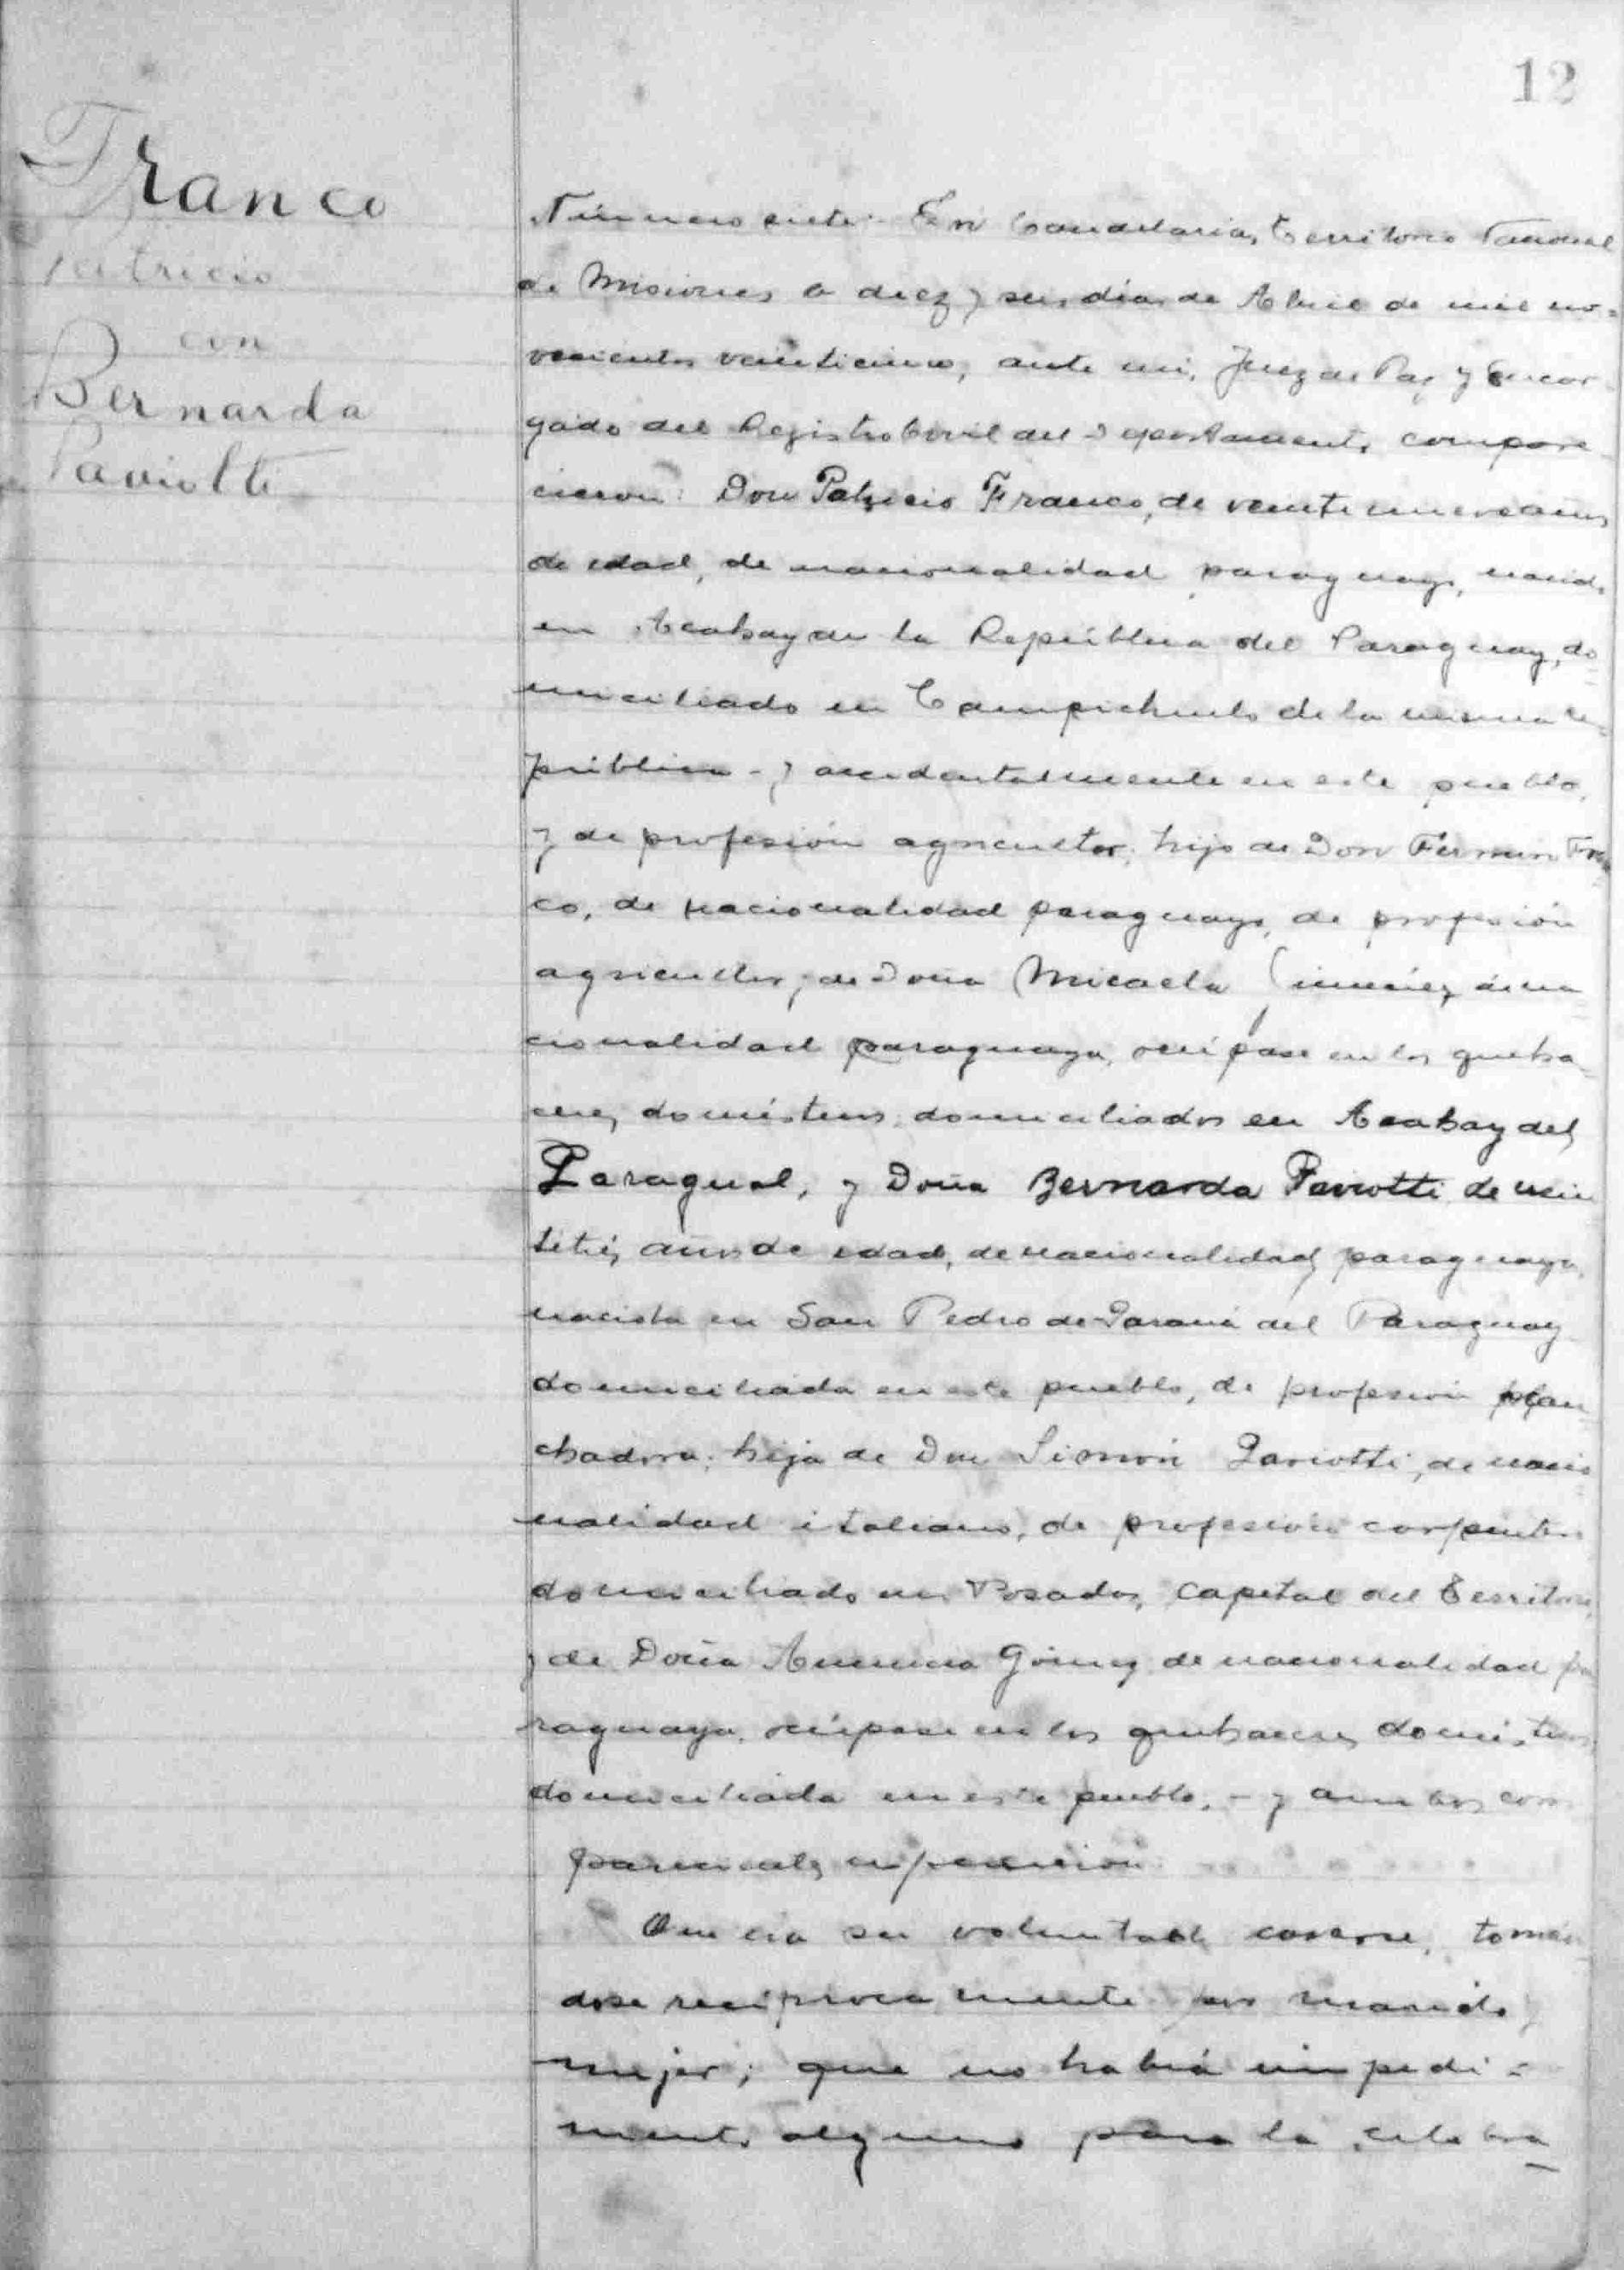 12
Franco
Patricio
con
Bernarda
Paviotti
Número siete. En Candelaria, Territorio Nacional
de Misiones a diez y seis días de Abril de mil no-
vecientos veinticinco, ante mi, Juez de Paz y Encar-
gado del Registro Civil del Departamento, compare-
cieron: Don Patricio Franco, de veintenueve años
de edad, de nacionalidad paraguayo, nacido
en Acahay de la República del Paraguay, do-
miciliado en Campichuelo de la misma re-
pública - y accidentalmente en este pueblo,
y de profesión agricultor; hijo de Don Fermin Fran
co, de nacionalidad paraguayo, de profesión
agricultor, y de Doña Micaela Jimenez, de na-
cionalidad paraguaya, ocúpase en los queha-
ceres domésticos, domiciliados en Acahay del
Paragual, y Doña Bernarda Paviotti de vein
titrés años de edad, de nacionalidad paraguaya,
nacida en San Pedro de Paraná del Paraguay
domiciliada en este pueblo, de profesión plan-
chadora; hija de Don Simón Paviotti, de nacio-
nalidad italiano, de profesión carpintero
domiciliado en Posadas, capital del Territorio,
y de Doña Gómez de nacionalidad pa
raguaya, ocúpase en los quehaceres domésticos,
domiciliada en este pueblo. - y ambos com-
parecientes expusieron
Que era su voluntad casarse, tomán
dose recíprocamente por marido y
mujer; que no había impedi-
mento alguno para la celebra-